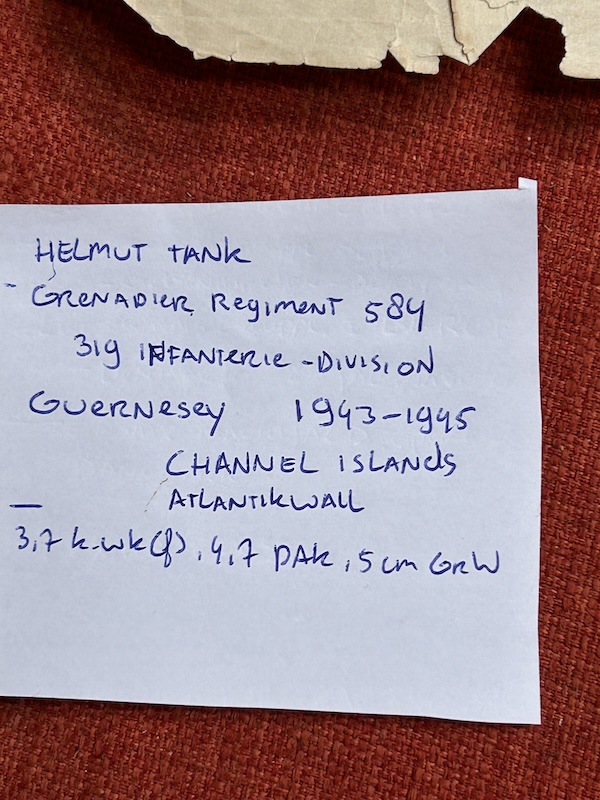 HELMUT TANK
- GRENADIER Regiment 584
319 INFANTERIE-DIVISION
GUERNESEY 1943-1945
CHANNEL ISLANDS
ATLANTIKWALL
3,7 k.wk(f), 4,7 PAK, 5 cm GRW